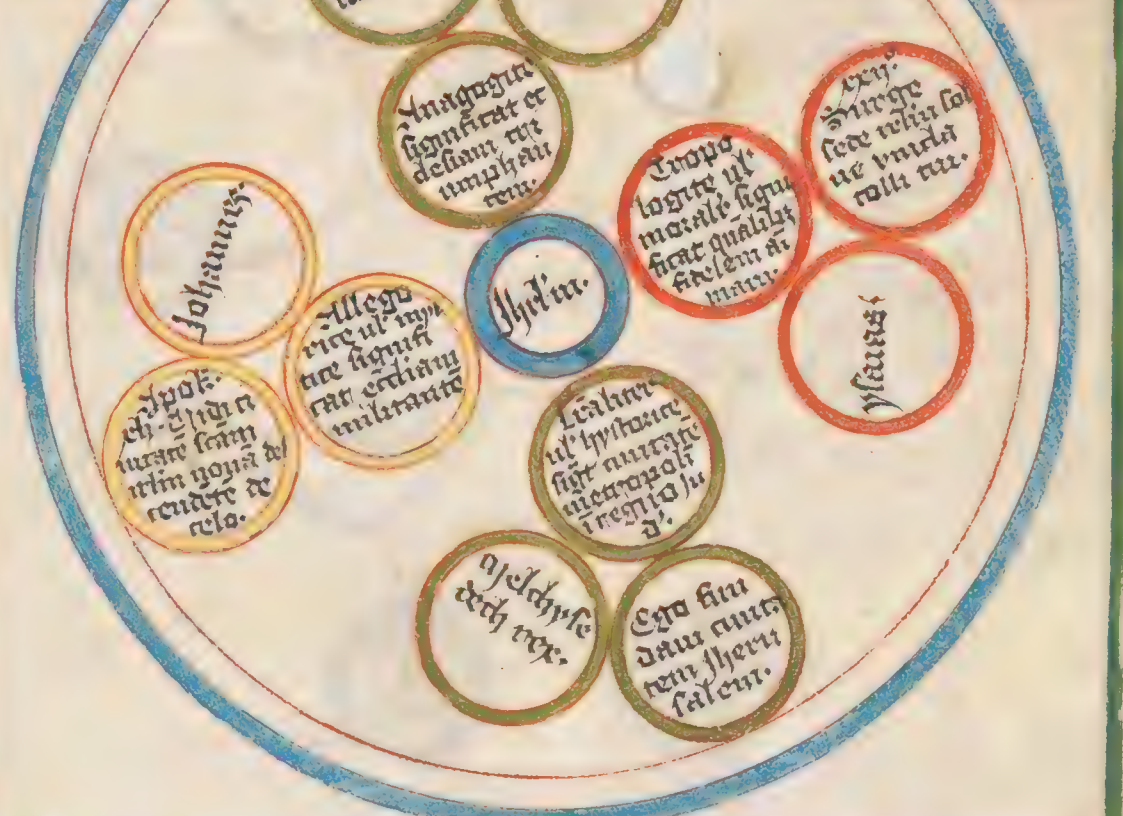 Anagogice
significat ec
clesiam tri
umphan
tem.
Tropo
logice ul'
morale signi
ficat qualib3
fidelem ai
mam.
Surge
sede irlm sol
ue vincla
colli tui.
ysaias
Jhrlm.
Johannes
Allego
rice ul' mys
tice signifi
cat eccliam
militante
Apok.
vidi ci
uitate scam
irlm noua des
cendete de
celo.
ul' hystorice
sigt ciuitate
metropoli
i regno Ju
d'.
Melchyse
dech rex.
Ego fun
daui ciuita
tem Jheru
salem.